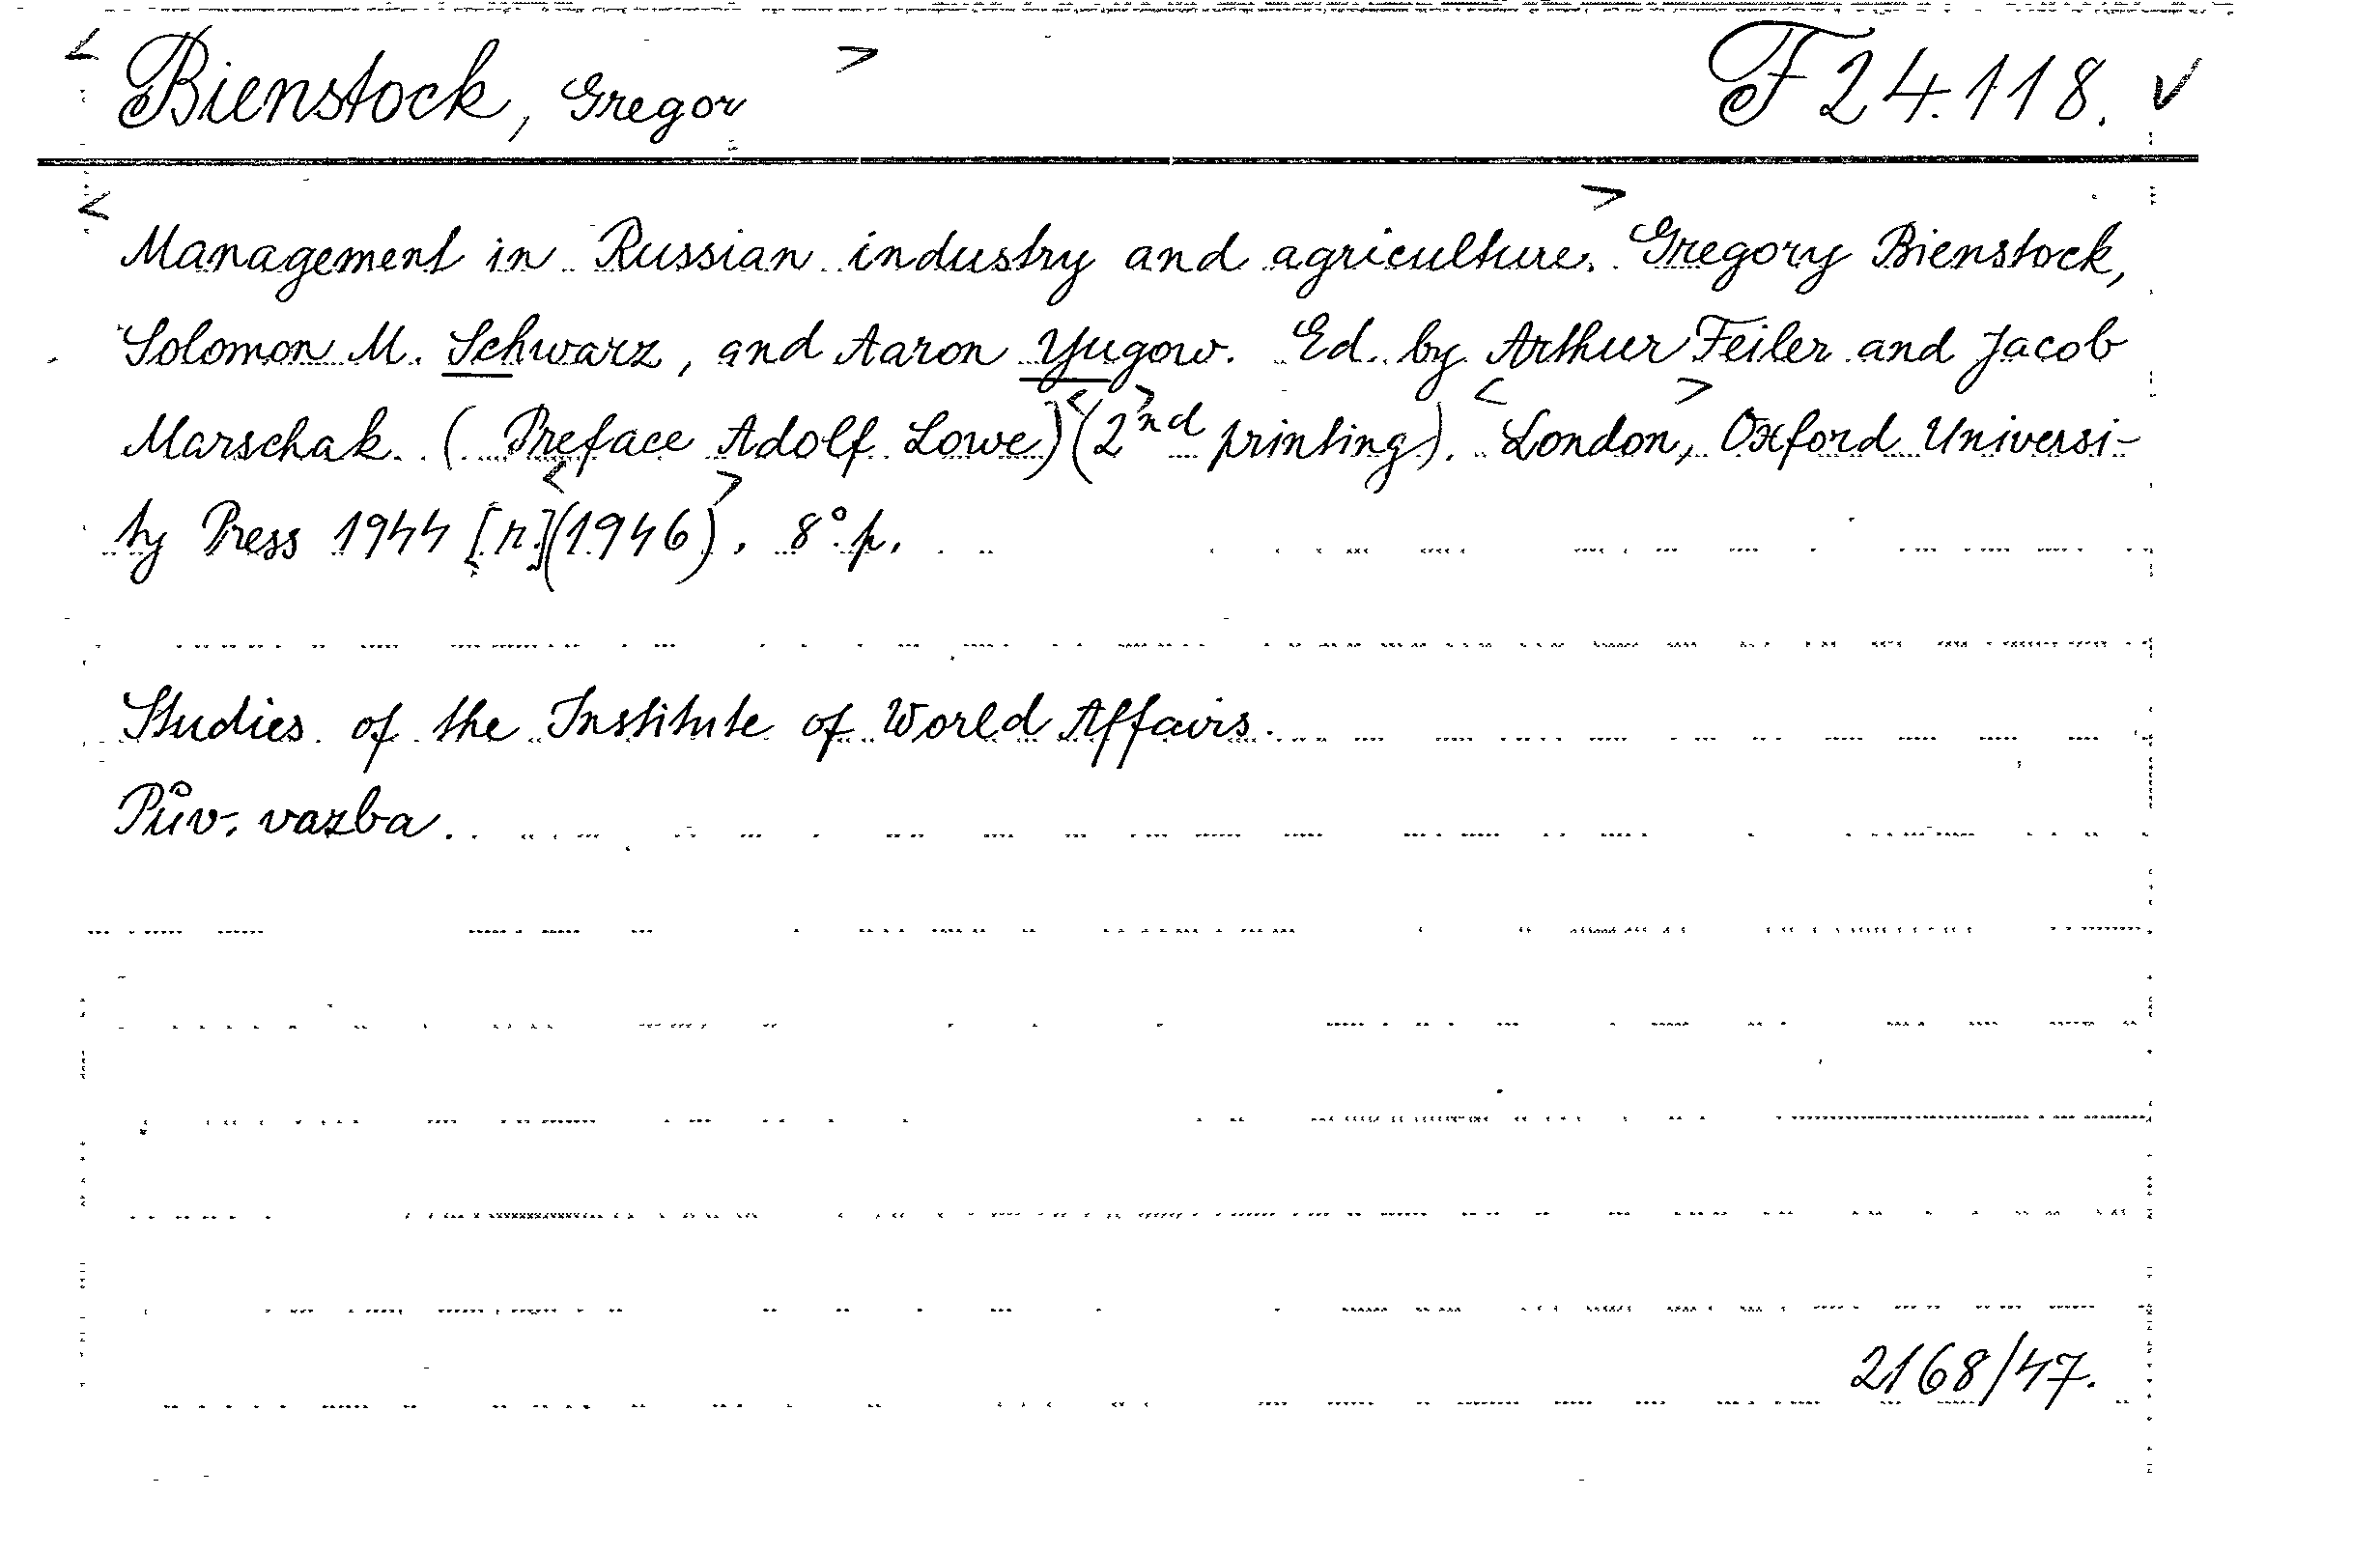 < Bienstock, Gregor > F 24.118. ✓
< Management in Russian industry and agriculture. > Gregory Bienstock,
Solomon M. Schwarz, and Aaron Yugow. Ed. by Arthur Feiler and Jacob
Marschak. (Preface Adolf Lowe) <(2nd> printing). <London,> Oxford Universi-
ty Press 1944 [r.] <(1946)>. 8° p.
Studies of the Institute of World Affairs.
Pův. vazba.
2168/47.